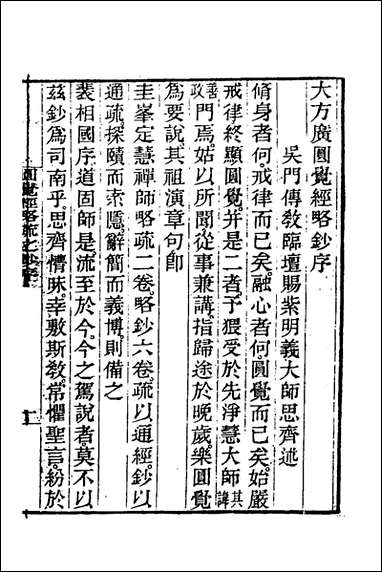 大方廣圓覺經略鈔序
吳門傳敎臨壇賜紫明義大師思齊述
脩身者何。戒律而已矣。融心者何。圓覺而已矣。始嚴
戒律終顯圓覺。并是二者予猥受於先淨慧大師其諱
善政門焉。姑以所聞從事兼講。指歸途於晚歲。樂圓覺
爲要說。其祖演章句卽
圭峯定慧禪師略疏二卷略鈔六卷疏以通經。鈔以
通疏探賾而索隱。辭簡而義博。則備之
裴相國序道固師是。流至於今。今之駕說者。莫不以
茲鈔爲司南乎思齊情昧。幸敷斯敎。常懼聖言。紛於
圓覺經略疏之鈔序
一